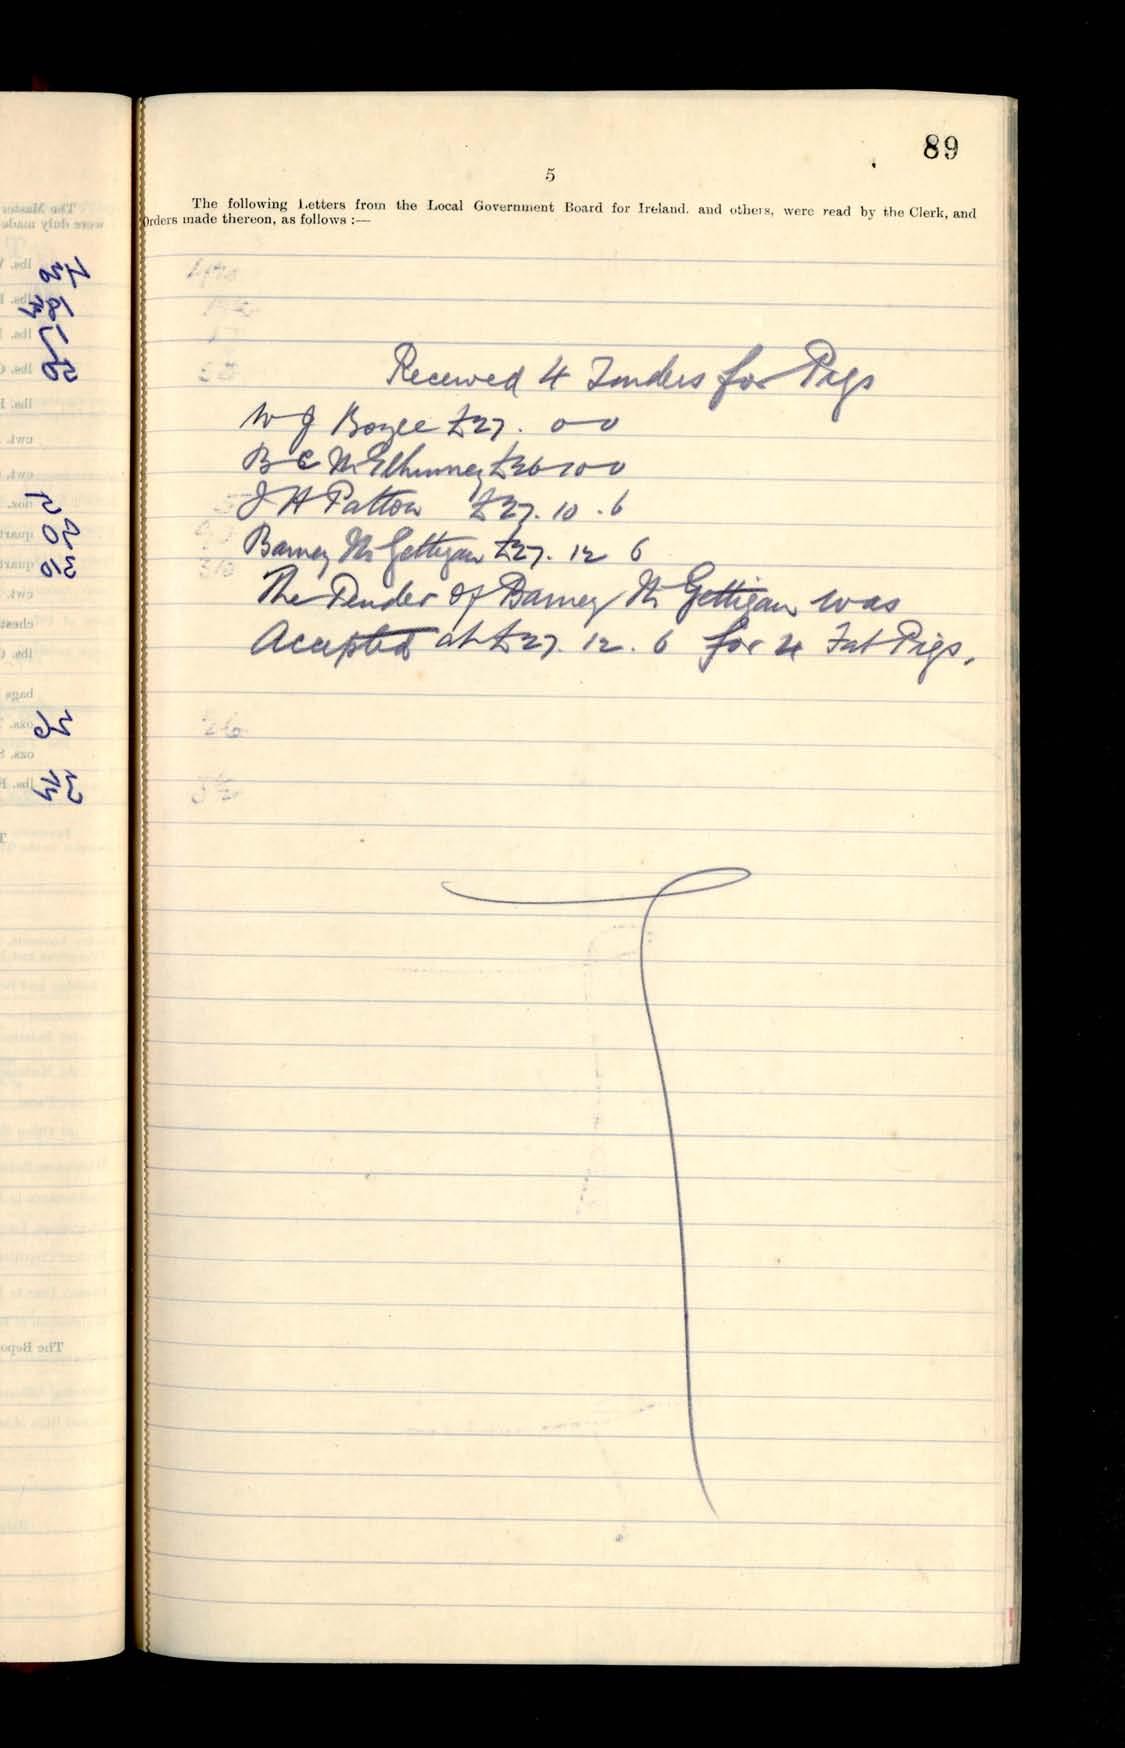 89
5
The following Letters from the Local Government Board for Ireland, and others, were read by the Clerk, and
Orders made thereon, as follows :—
Received 4 Tenders for Pigs
W J Boyce £27. 0-0
B C McElhinney £26-10-0
J H Patton £27. 10. 6
Barney McGettigan £27. 12 6
The Tender of Barney McGettigan was
Accepted at £27. 12. 6 for 4 Fat Pigs.